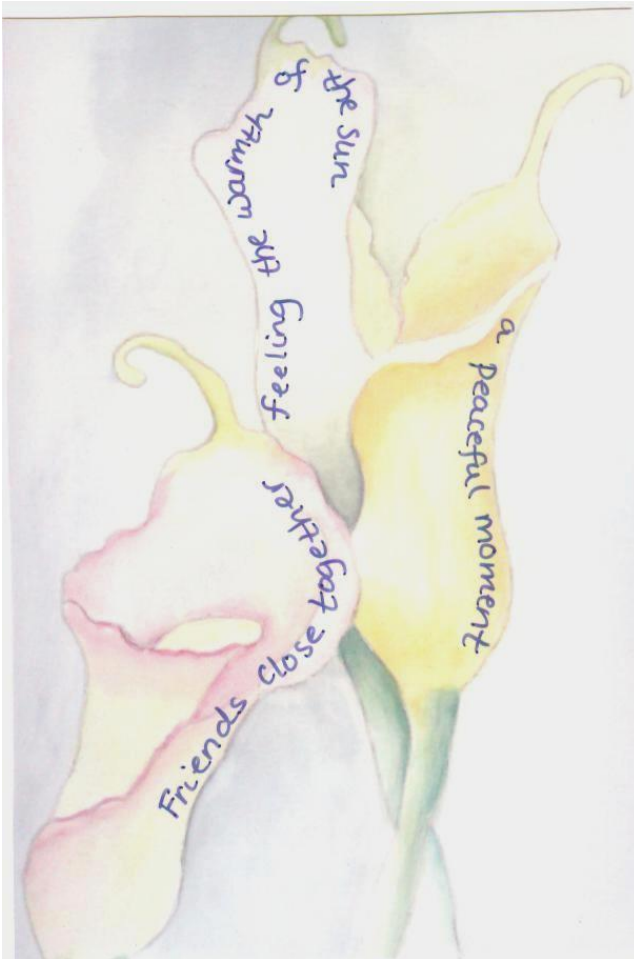 Friends close together
feeling the warmth of the sun
a peaceful moment